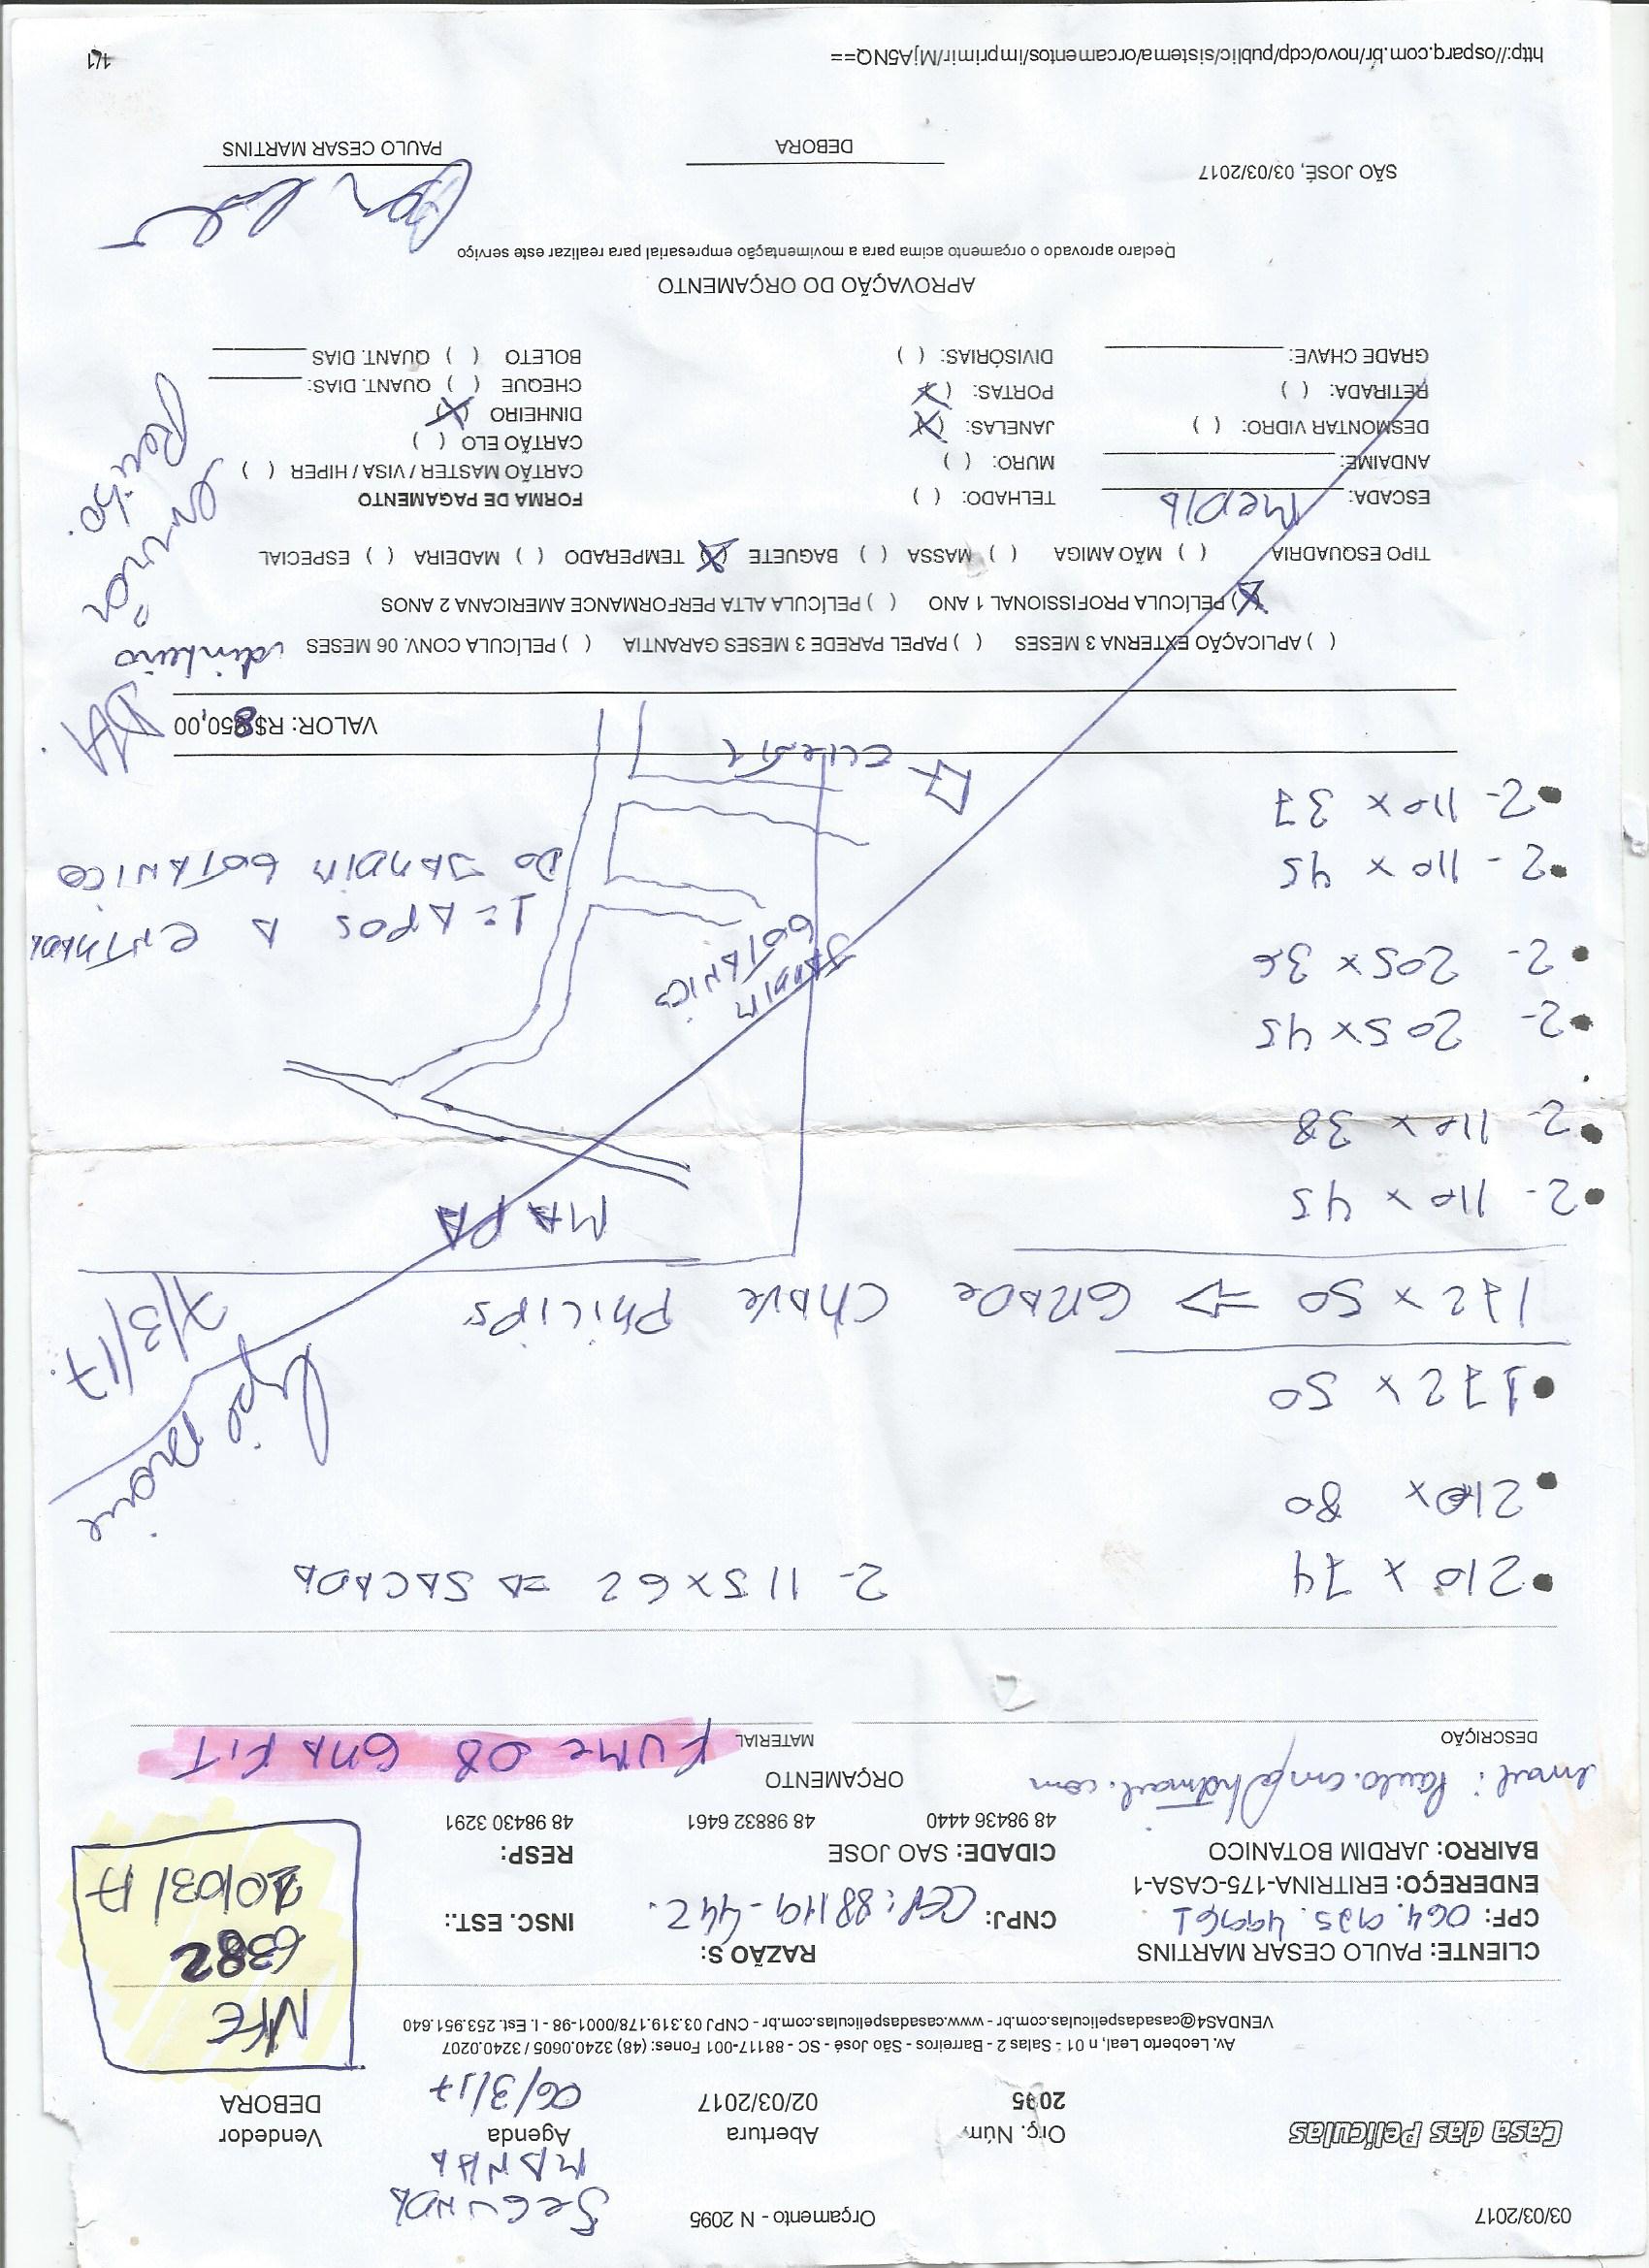 03/03/2017 Orçamento - N 2095 SEGUNDA
MANHA
Casa das Películas Orç. Núm. Abertura Agenda Vendedor
2095 02/03/2017 06/3/17 DEBORA
Av. Leoberto Leal, n 01 - Salas 2 - Barreiros - São José - SC - 88117-001 Fones: (48) 3240.0605 / 3240.0207
VENDAS4@casadaspeliculas.com.br - www.casadaspeliculas.com.br - CNPJ 03.319.178/0001-98 - I. Est. 253.951.640
NFE
6382
20/03/17
CLIENTE: PAULO CESAR MARTINS RAZÃO S:
CPF: 064.925.49961 CNPJ: CEP: 88119-442. INSC. EST.:
ENDEREÇO: ERITRINA-175-CASA-1
BAIRRO: JARDIM BOTANICO CIDADE: SAO JOSE RESP:
48 98436 4440 48 98832 6461 48 98430 3291
email: Paulo.cm@hotmail.com
ORÇAMENTO
DESCRIÇÃO MATERIAL FUME 08 GRAFIT
210 x 74 2- 115 x 62 => SACADA
210 x 80
172 x 50
172 x 50 => GRADE CHAVE PHILIPS
7/3/17.
2- 110 x 45 MAPA
2- 110 x 38
2- 205 x 45
2- 205 x 36 JARDIM BOTANICO
2- 110 x 45 1= APOS A ENTRADA
2- 110 x 37 DO JARDIM BOTANICO
CLIENTE
VALOR: R$ 850,00
dinheiro
( ) APLICAÇÃO EXTERNA 3 MESES ( ) PAPEL PAREDE 3 MESES GARANTIA ( ) PELÍCULA CONV. 06 MESES
(X) PELÍCULA PROFISSIONAL 1 ANO ( ) PELÍCULA ALTA PERFORMANCE AMERICANA 2 ANOS
TIPO ESQUADRIA ( ) MÃO AMIGA ( ) MASSA ( ) BAGUETE (X) TEMPERADO ( ) MADEIRA ( ) ESPECIAL
enviar
Recibo.
ESCADA: MEDIA TELHADO: ( ) FORMA DE PAGAMENTO
ANDAIME: MURO: ( ) CARTÃO MASTER / VISA / HIPER ( )
DESMONTAR VIDRO: ( ) JANELAS: (X) CARTÃO ELO ( )
RETIRADA: ( ) PORTAS: (X) DINHEIRO (X)
GRADE CHAVE: DIVISÓRIAS: ( ) CHEQUE ( ) QUANT. DIAS:
BOLETO ( ) QUANT. DIAS
APROVAÇÃO DO ORÇAMENTO
Declaro aprovado o orçamento acima para a movimentação empresarial para realizar este serviço
SÃO JOSÉ, 03/03/2017 DEBORA PAULO CESAR MARTINS
http://osparq.com.br/novo/cdp/public/sistema/orcamentos/imprimir/MjA5NQ== 1/1